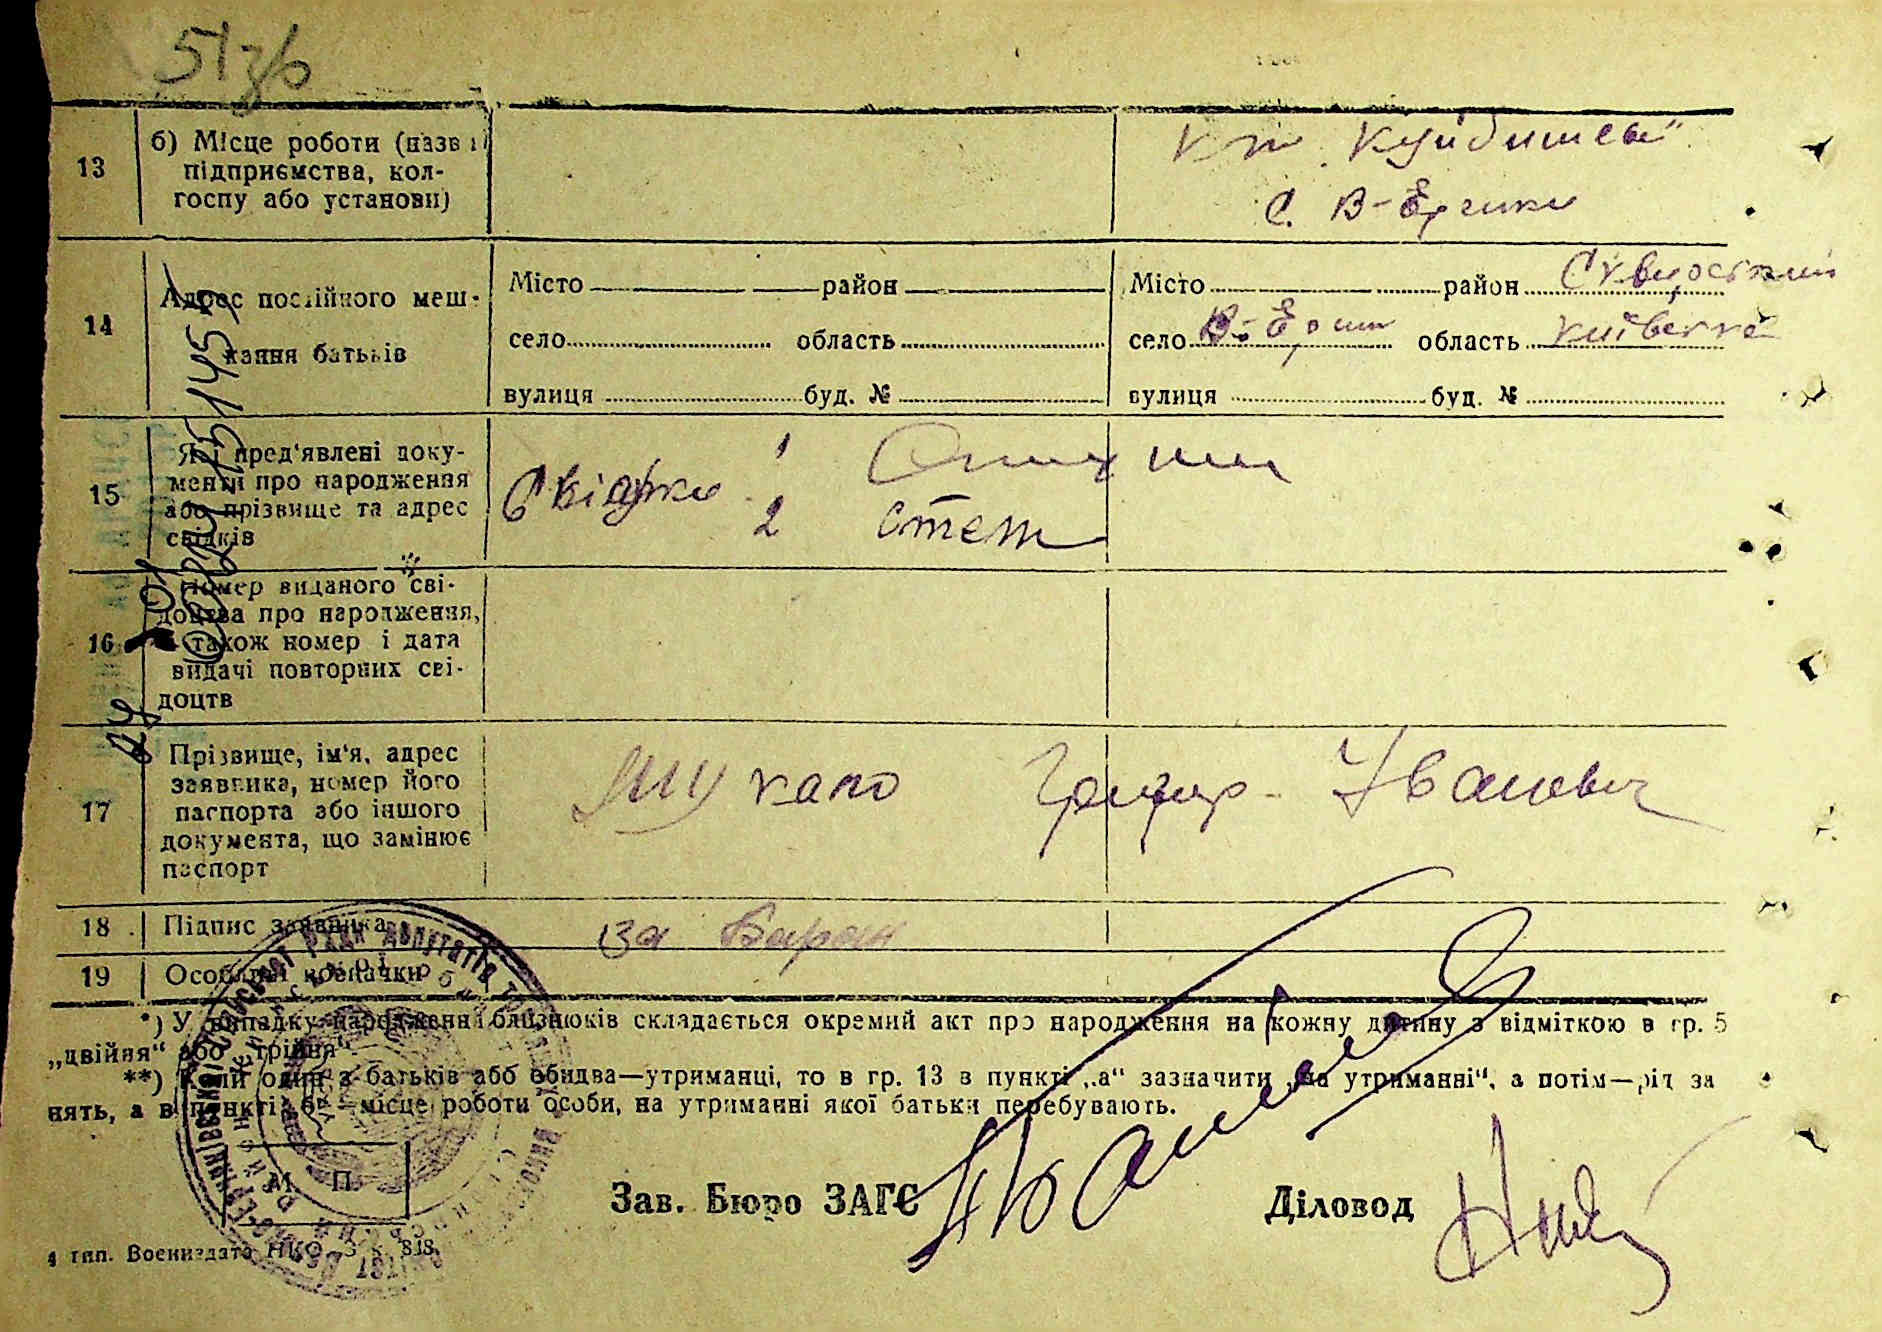 51 з/б
13
б) Місце роботи (назва
підприємства, кол-
госпу або установи)
к-п „Куйбишева"
с. В-Єрчики
14
Адрес постійного меш-
кання батьків
Місто район
село область
вулиця буд. №
Місто район Сквирський
село В-Єрчик область Київська
вулиця буд. №
15
Які пред'явлені доку-
менти про народження
або прізвище та адрес
свідків
Свідки 1
2
16
Номер виданого сві-
доцтва про народження,
а також номер і дата
видачі повторних сві-
доцтв
17
Прізвище, ім'я, адрес
заявника, номер його
паспорта або іншого
документа, що замінює
паспорт
Григор Іванович
18
Підпис заявника
за Баран
19
Особливі позначки
*) У випадку народження близнюків складається окремий акт про народження на кожну дитину з відміткою в гр. 5
„двійня“ або „трійня“.
**) Коли один з батьків або обидва—утриманці, то в гр. 13 в пункті „а“ зазначити „на утриманні“, а потім—рід за
нять, а в пункті „б“—місце роботи особи, на утриманні якої батьки перебувають.
М. П.
Зав. Бюро ЗАГС
Діловод
4 тип. Воениздата НКО. З. 818.